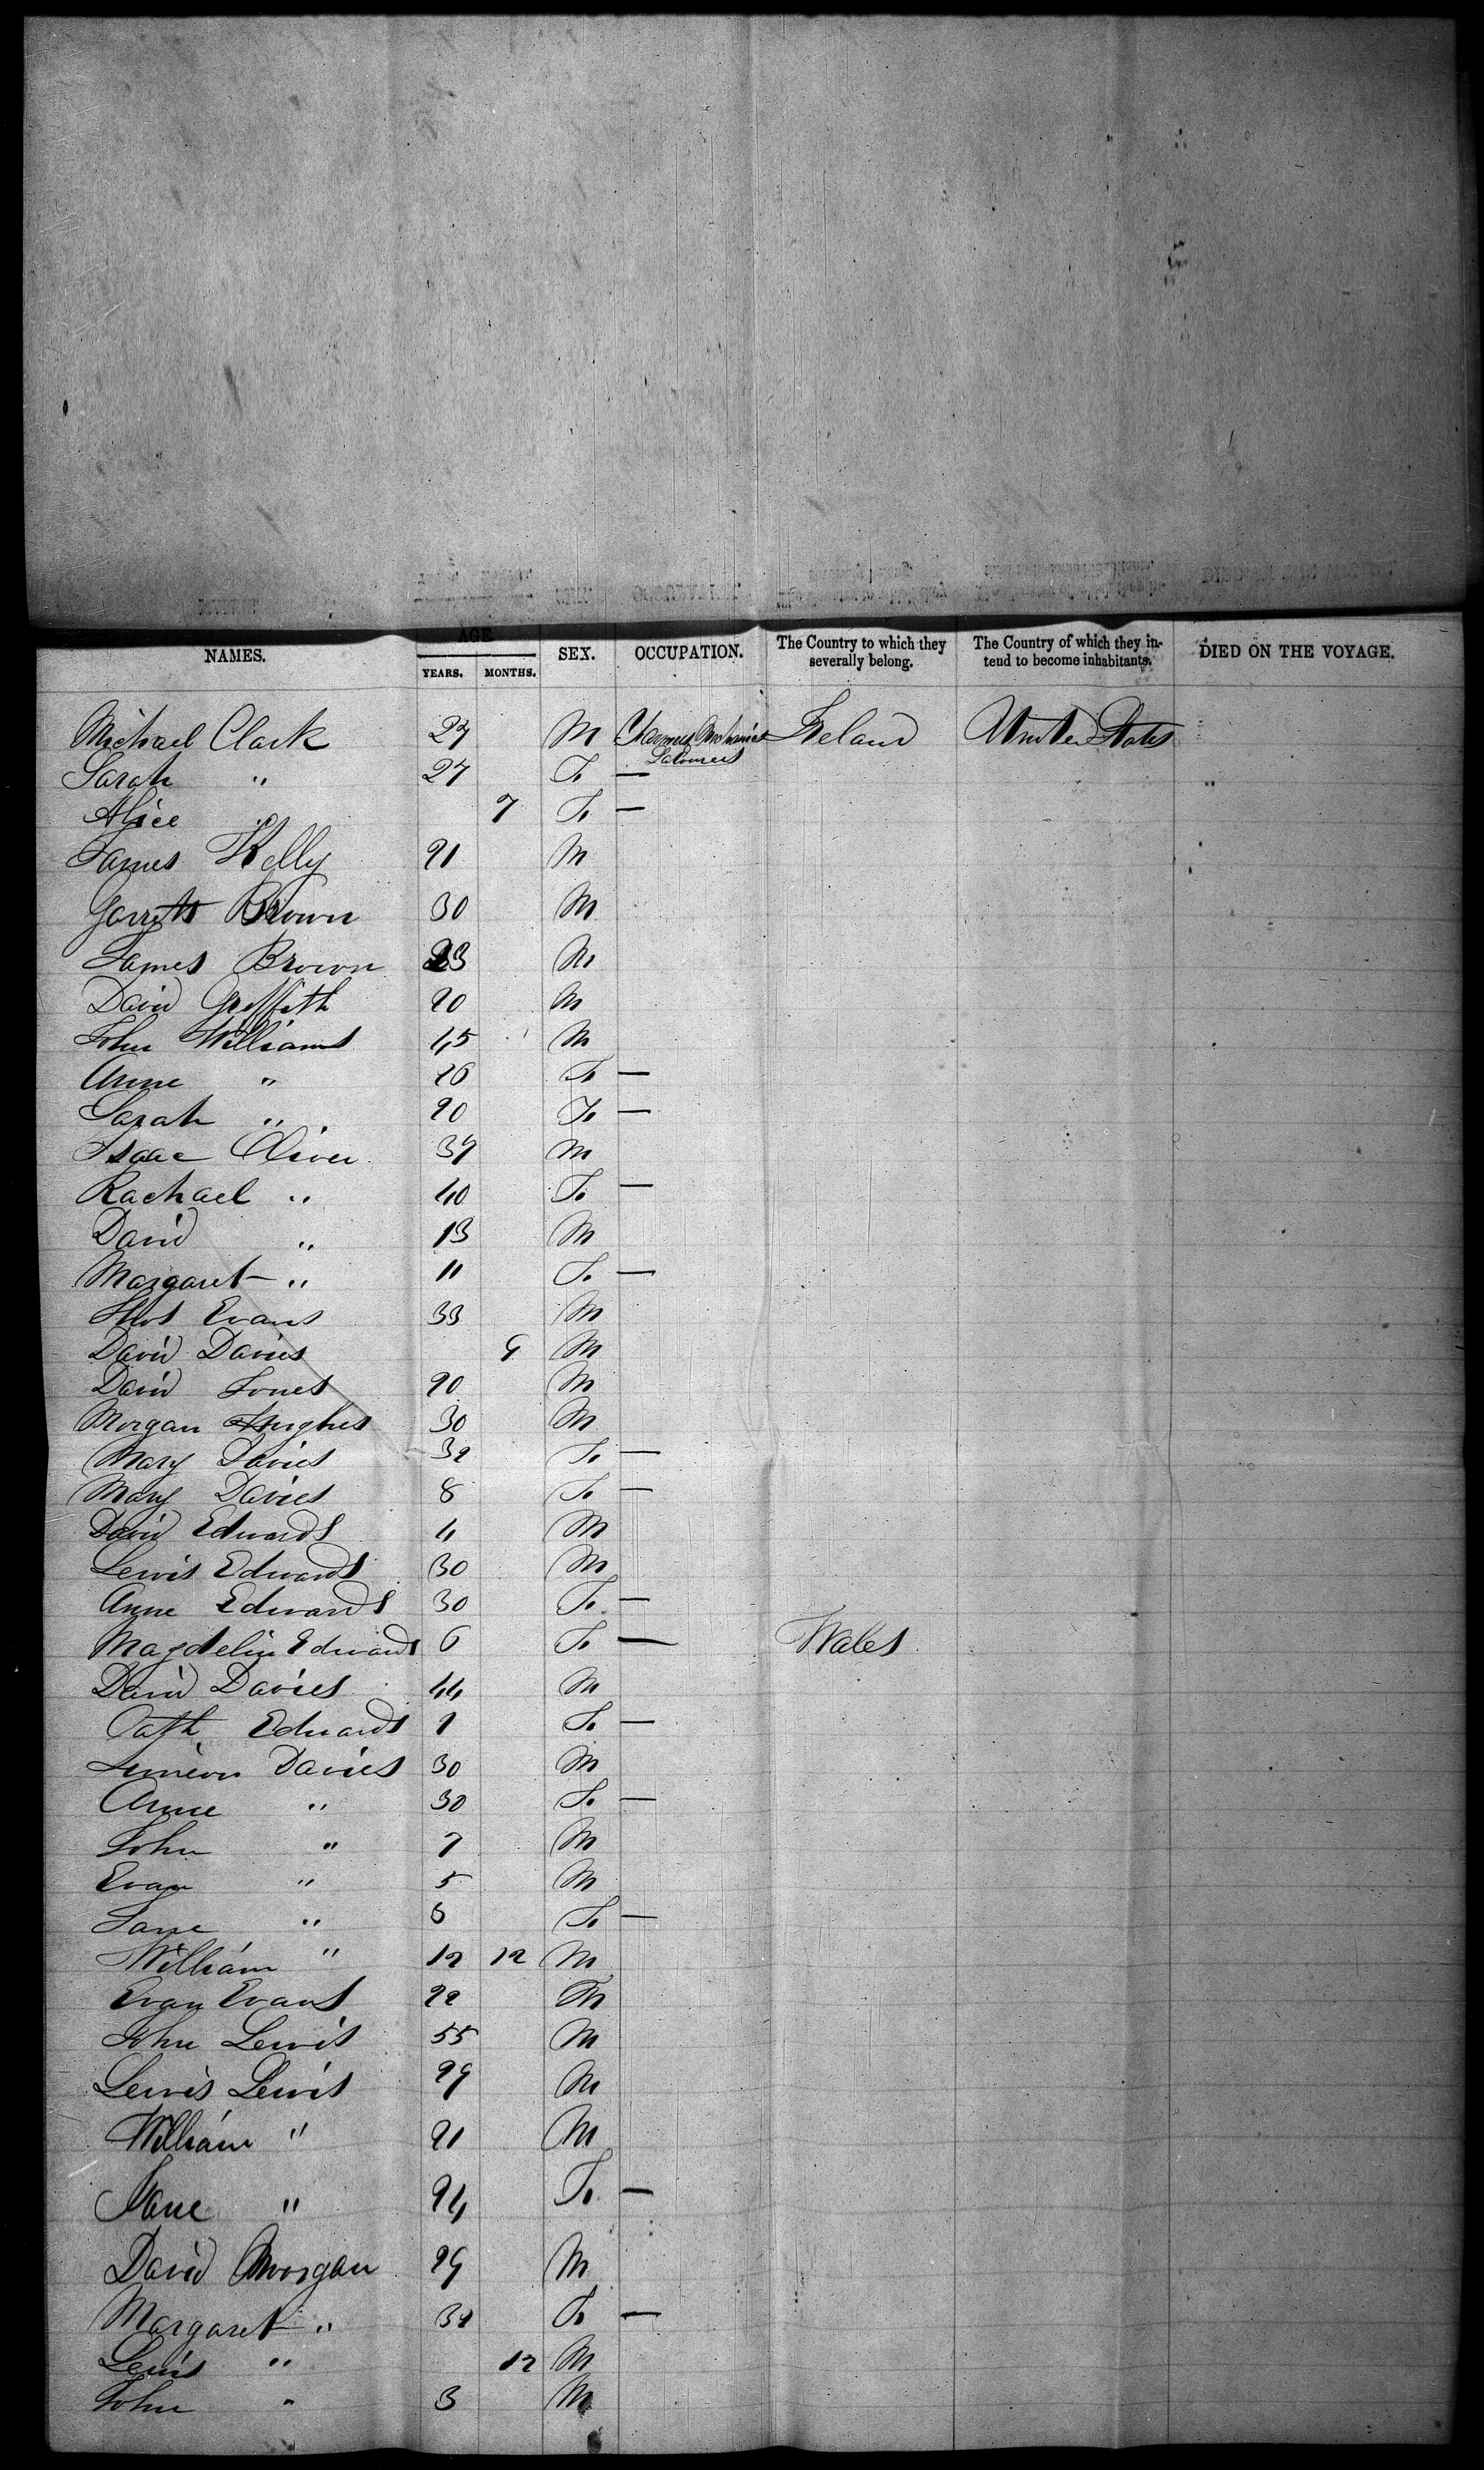 AGE
NAMES. YEARS. MONTHS. SEX. OCCUPATION. The Country to which they severally belong. The Country of which they intend to become inhabitants. DIED ON THE VOYAGE.
Michael Clark 27 M Farmers Mechanics Laborers Ireland United States
Sarah " 27 F —
Alice " 7 F —
James Kelly 21 M
Garrett Brown 30 M
James Brown 23 M
David Griffith 20 M
John Williams 45 M
Anne " 26 F —
Sarah " 20 F —
Isaac Oliver 37 M
Rachael " 40 F —
David " 13 M
Margaret " 11 F —
Thos Evans 33 M
David Davies 9 M
David Jones 20 M
Morgan Hughes 30 M
Mary Davies 32 F —
Mary Davies 8 F —
David Edwards 4 M
Lewis Edwards 30 M
Anne Edwards 30 F —
Magdelin Edwards 6 F — Wales
David Davies 44 M
Cath. Edwards 1 F —
Simeon Davies 30 M
Anne " 30 F —
John " 7 M
Evan " 5 M
Jane " F —
William " 12 12 M
Evan Evans 22 M
John Lewis 55 M
Lewis Lewis 29 M
William " 21 M
Jane " 24 F —
David Morgan 29 M
Margaret " F —
Lewis " 12 M
John " 3 M